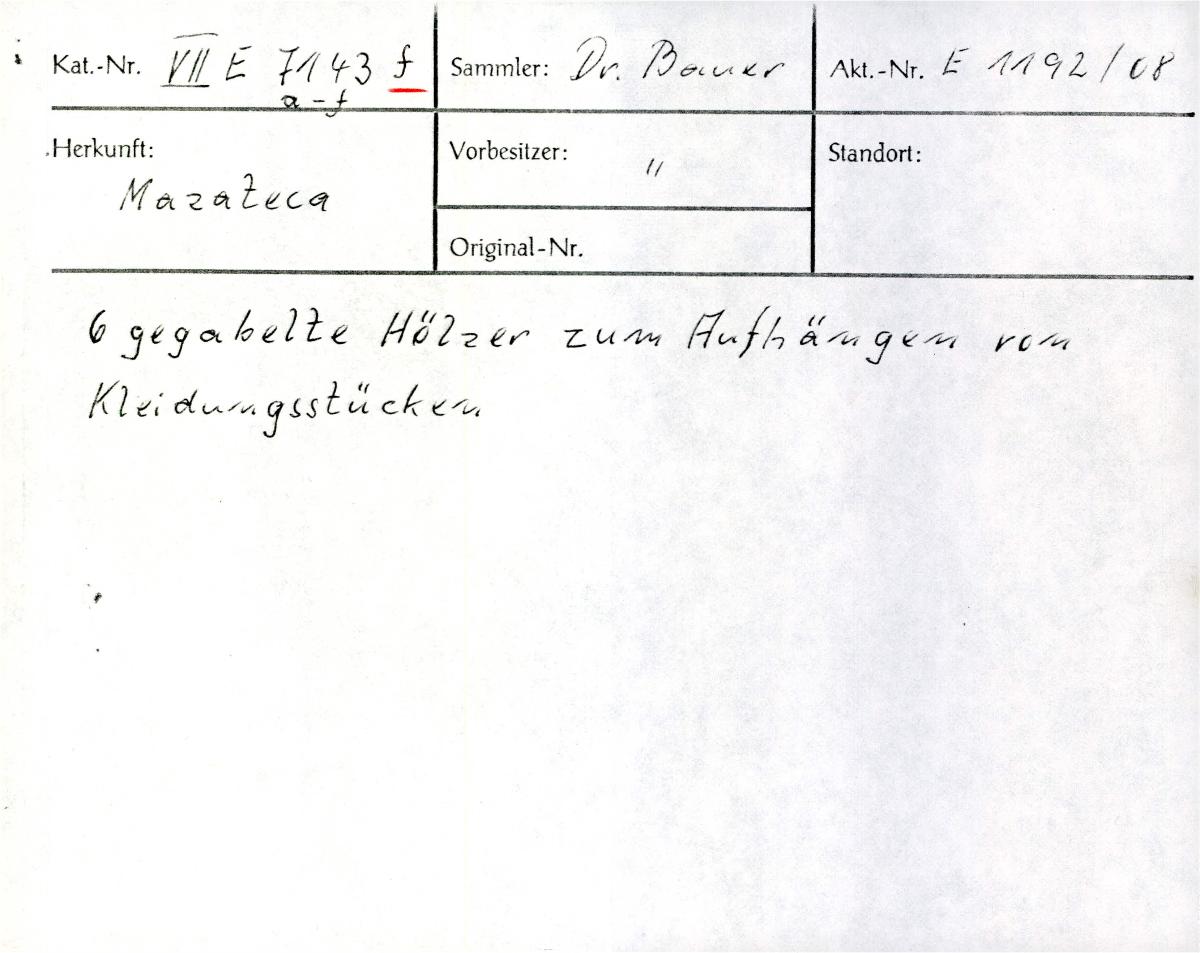 Kat.-Nr. VII E 7143 f
a-f
Sammler: Dr. Bauer
Akt.-Nr. E 1192/08
Herkunft:
Mazateca
Vorbesitzer: "
Standort:
Original-Nr.
6 gegabelte Hölzer zum Aufhängen von
Kleidungsstücken